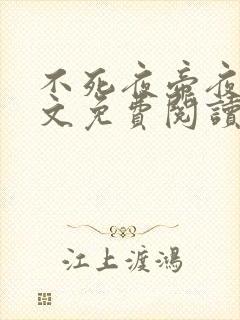 不死夜帝夜
文免費閱讀
江上渡鴻